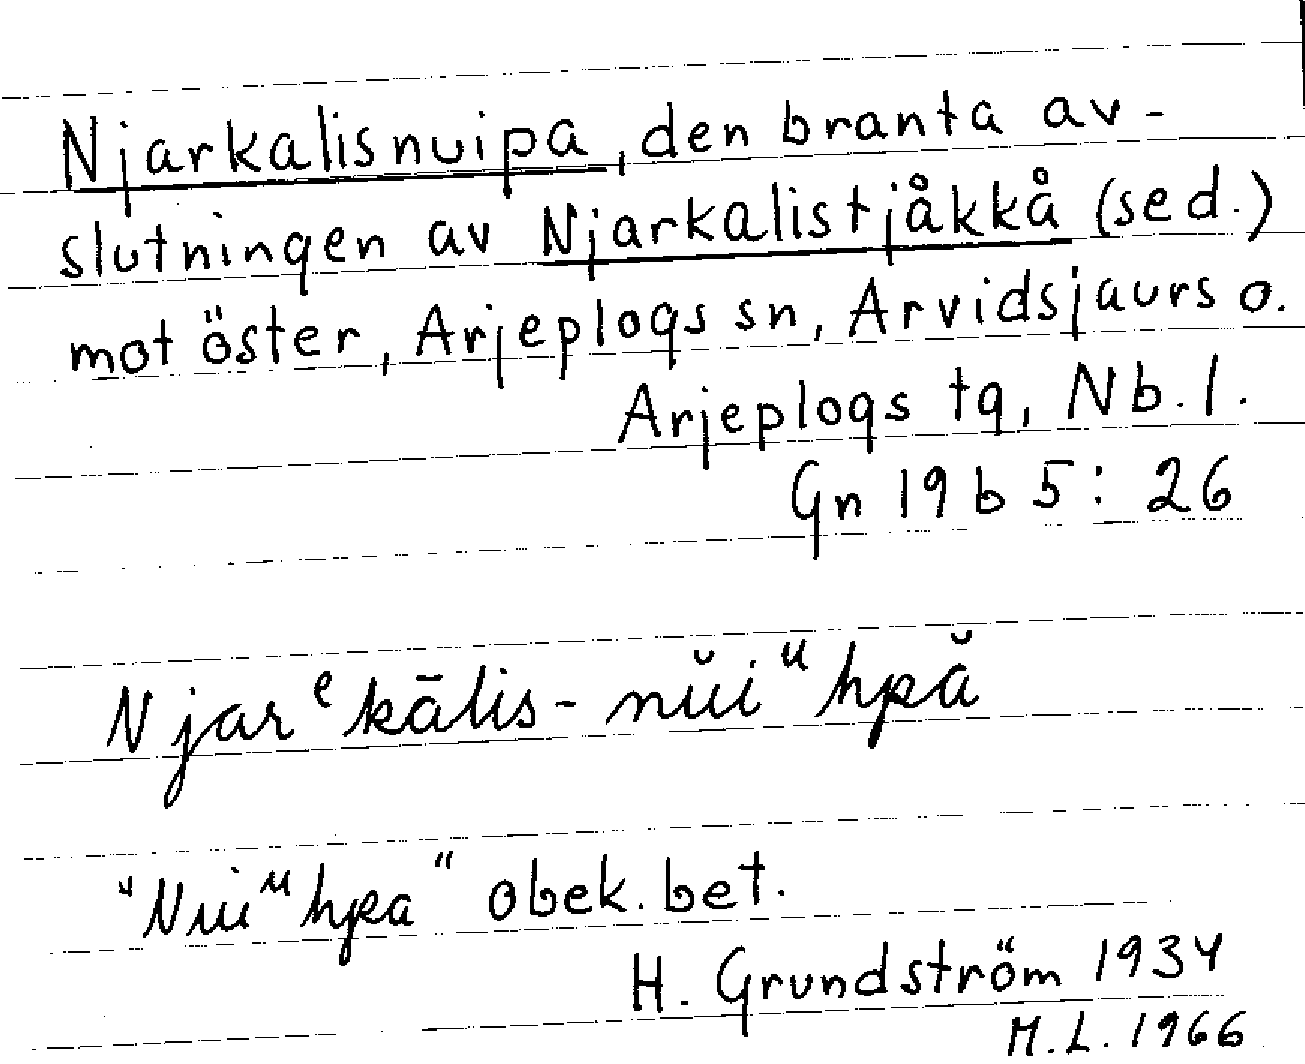 Njarkalisnuipa, den branta av-
slutningen av Njarkalistjåkkå (sed.)
mot öster, Arjeplogs sn, Arvidsjaurs o.
Arjeplogs tg, Nb. l.
Gn 19 b 5: 26
Njarᵉkālis-nŭiᵘhpă
"Nuiᵘhpa" obek. bet.
H. Grundström 1934
M.L. 1966